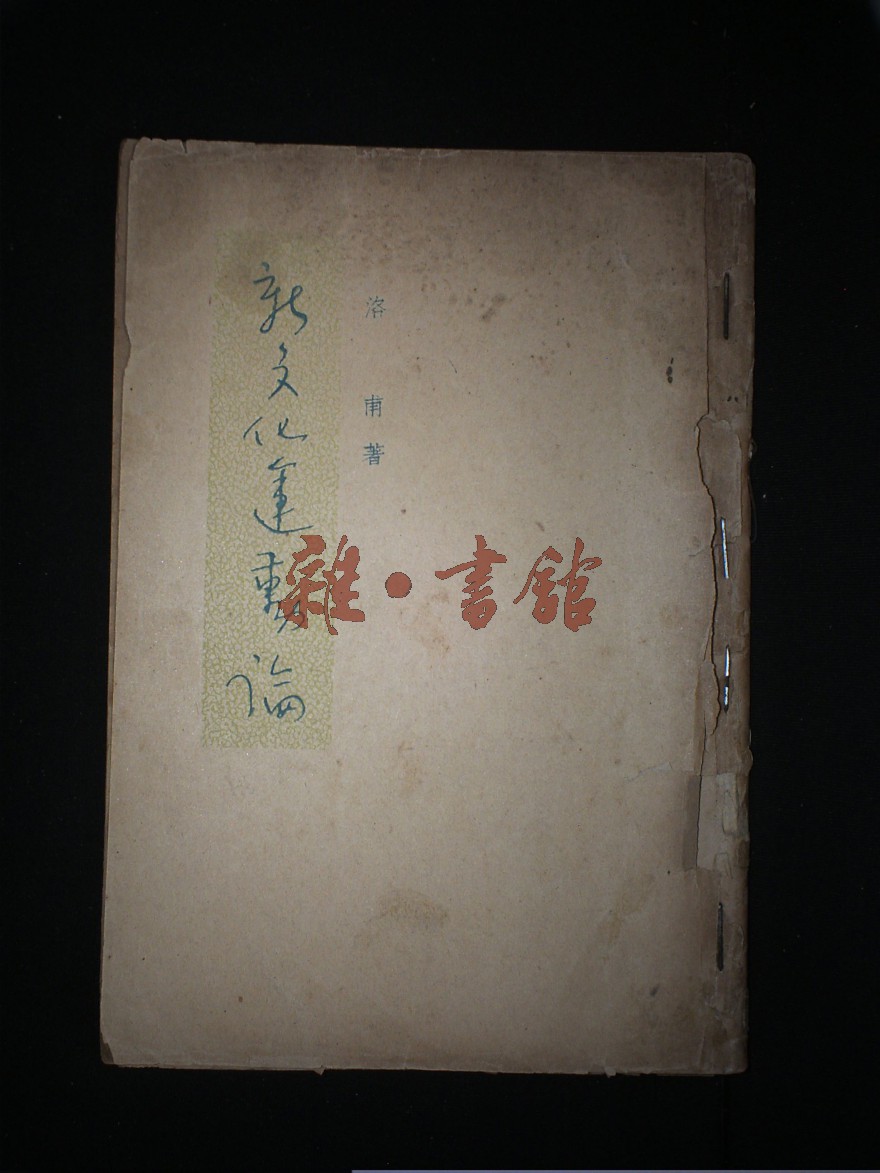 洛甫著
新文化運動論
雜·書館